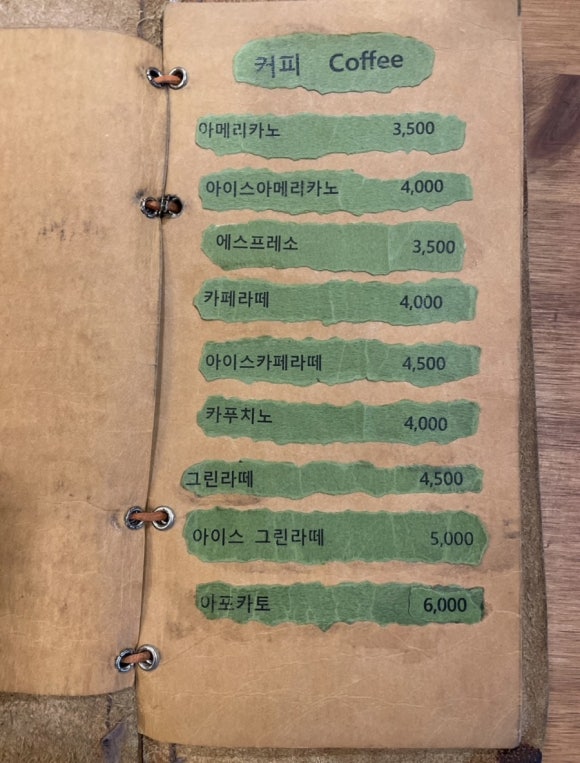 커피 Coffee
아메리카노 3,500
아이스아메리카노 4,000
에스프레소 3,500
카페라떼 4,000
아이스카페라떼 4,500
카푸치노 4,000
그린라떼 4,500
아이스 그린라떼 5,000
아포카토 6,000